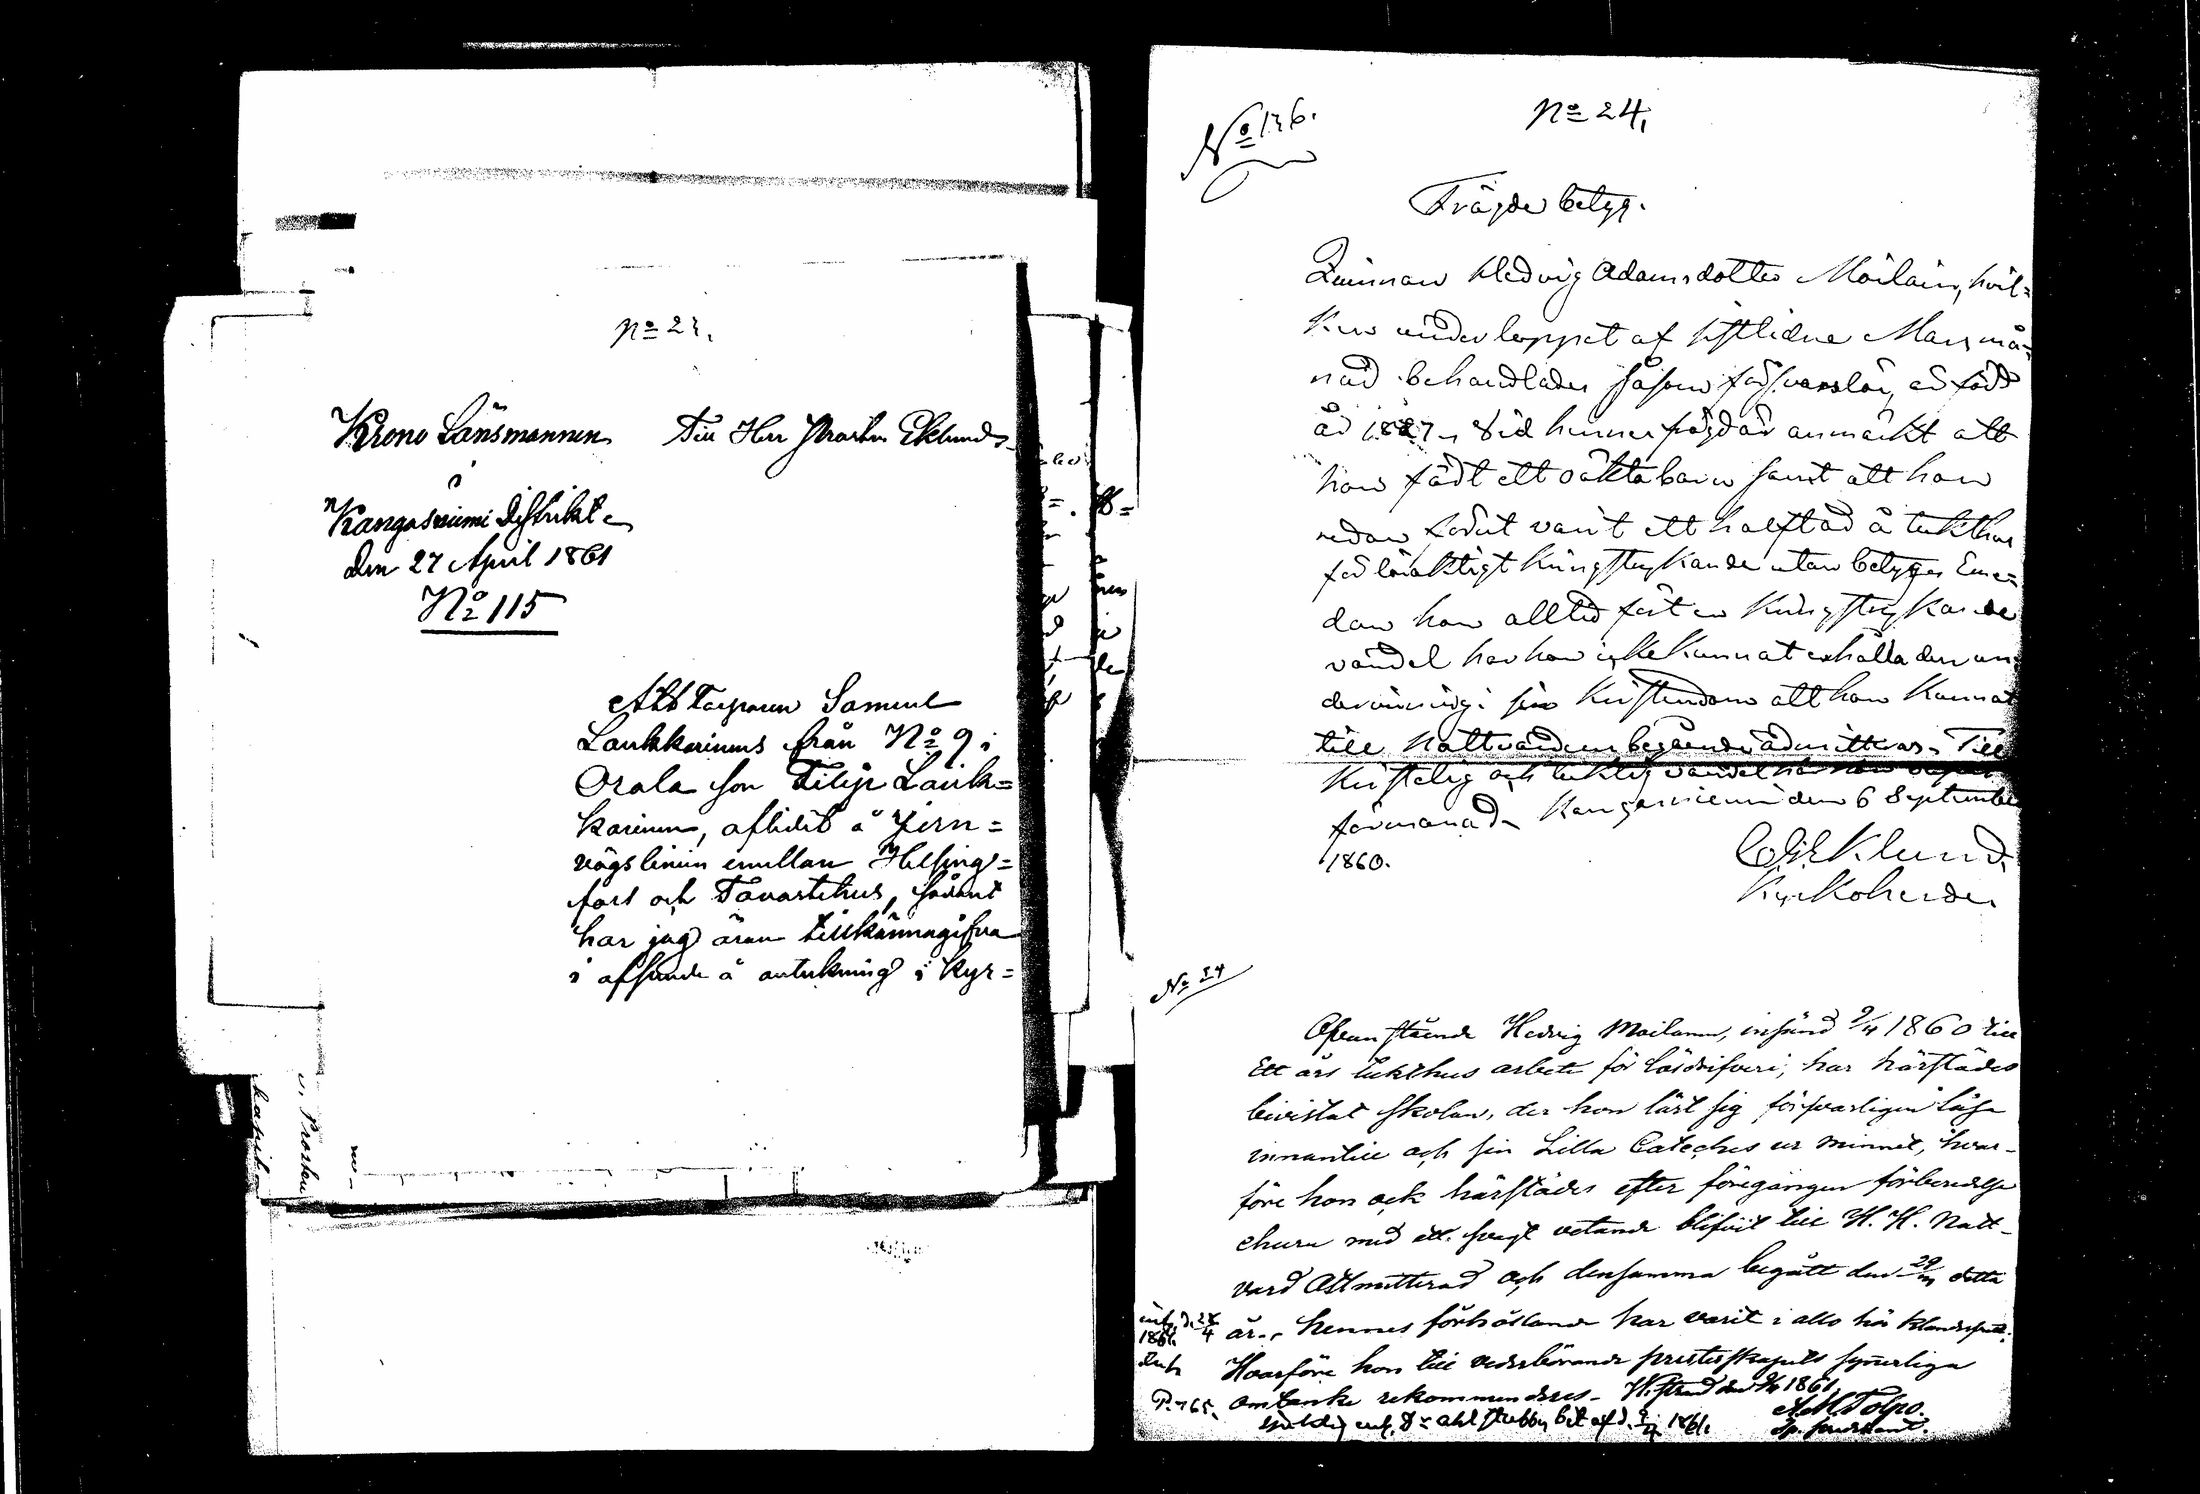 No 23.
Krono Länsmannen
i
Kangasniemi distrikt
den 27 April 1861
No 115
Till Herr Prosten Eklund
Att Torparen Samuel
Laukkarinens från No 9 i
Orala son Filip Lauk=
karinen, aflidit å Jern=
vägslinien emellan Helsing=
fors och Tavastehus, sådant
har jag äran tillkännagifva
i afseende å anteckning i Kyr=
No 24,
No 136.
Frägde betyg.
Qvinnan Hedvig Adamsdotter Moilain, hvil=
ken under loppet af sistlidne Mars må=
nad behandlades såsom försvarslös, är född
år 1827, Vid hennes frägd är anmärkt att
hon födt ett oäkta barn samt att hon
redan förut varit ett halft år å tukthus
för lösaktigt kringstrykande utan betyg. Eme=
dan hon alltid fört en kringstrykande
vandel har hon icke kunnat erhålla den un=
dervisning i sin Kristendom att hon kunnat
till Nattvardens begående admitteras. Till
Kristelig och tuktig vandel har hon
förmanad. Kangasniemi den 6 September
1860.
Eklund
Kyrkoherde
No 24
Ofvanstående Hedvig Moilanen, insänd 9/4 1860 till
Ett års tukthus arbete för lösdrifveri, har härstädes
bevistat skolan, der hon lärt sig försvarligen läsa
innantill och sin Lilla Cateches ur minnet, hvar-
före hon ock härstädes efter föregången förberedelse
ehuru med ett svagt vetande blifvit till H. H. Natt-
vard Admitterad och densamma begått den 29/ detta
år., hennes förhållande har varit i allo här klanderfritt.
Hvarföre hon till vederbörande presterskapets synnerliga
omtanke rekommenderas. H.strand den 9/4 1861
A. M. Tolpo.
P. 765.
1861.